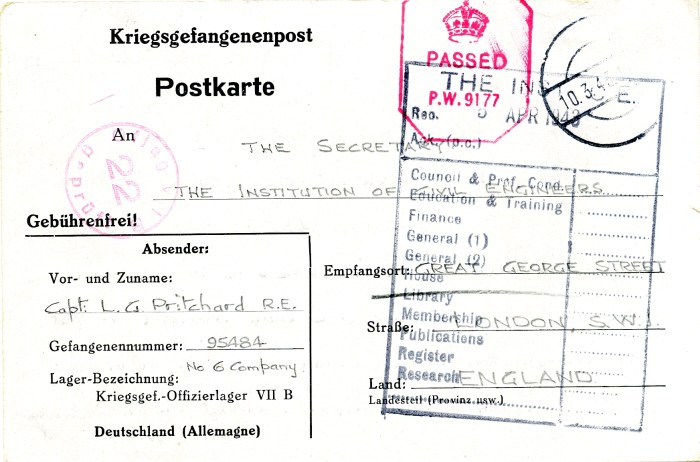 Kriegsgefangenenpost
Postkarte
PASSED
P.W. 9177
10.3.4
THE INS C.E.
Rec. APR 1943
Ack. (p.c.)
An THE SECRETARY
22
geprüft
THE INSTITUTION OF CIVIL ENGINEERS
Gebührenfrei!
Council & Prof. Cond.
Education & Training
Finance
General (1)
General (2)
House
Library
Membership
Publications
Register
Research
Absender:
Vor- und Zuname:
Capt. L. G. Pritchard R.E.
Gefangenennummer: 95484
No 6 Company
Lager-Bezeichnung:
Kriegsgef.-Offizierlager VII B
Deutschland (Allemagne)
Empfangsort: GREAT GEORGE STREET
Straße: LONDON, S.W.1.
Land: ENGLAND
Landesteil (Provinz usw.)